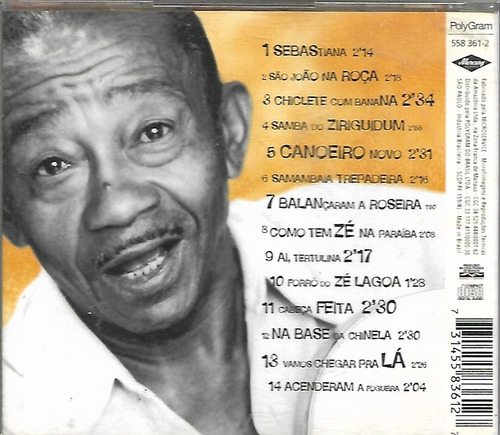 1 SEBASTIANA 2'14
2 SÃO JOÃO NA ROÇA 2'18
3 CHICLETE COM BANANA 2'34
4 SAMBA DO ZIRIGUIDUM
5 CANOEIRO NOVO 2'31
6 SAMAMBAIA TREPADEIRA 2'16
7 BALANÇARAM A ROSEIRA
8 COMO TEM ZÉ NA PARAÍBA 2'08
9 AI, TERTULINA 2'17
10 FORRÓ DO ZÉ LAGOA 1'28
11 CABEÇA FEITA 2'30
12 NA BASE DA CHINELA 2'30
13 VAMOS CHEGAR PRA LÁ 2'26
14 ACENDERAM A FOGUEIRA 2'04
PolyGram
558 361-2
Mercury
Fabricado pela MICROSERVICE - Microfilmagens e Reproduções Técnicas
da Amazônia Ltda. na Zona Franca de Manaus
Distribuído pela POLYGRAM DO BRASIL LTDA.
SÃO PAULO - Indústria Brasileira - Made in Brazil
COMPACT
DIGITAL AUDIO
7 31455 83612 7